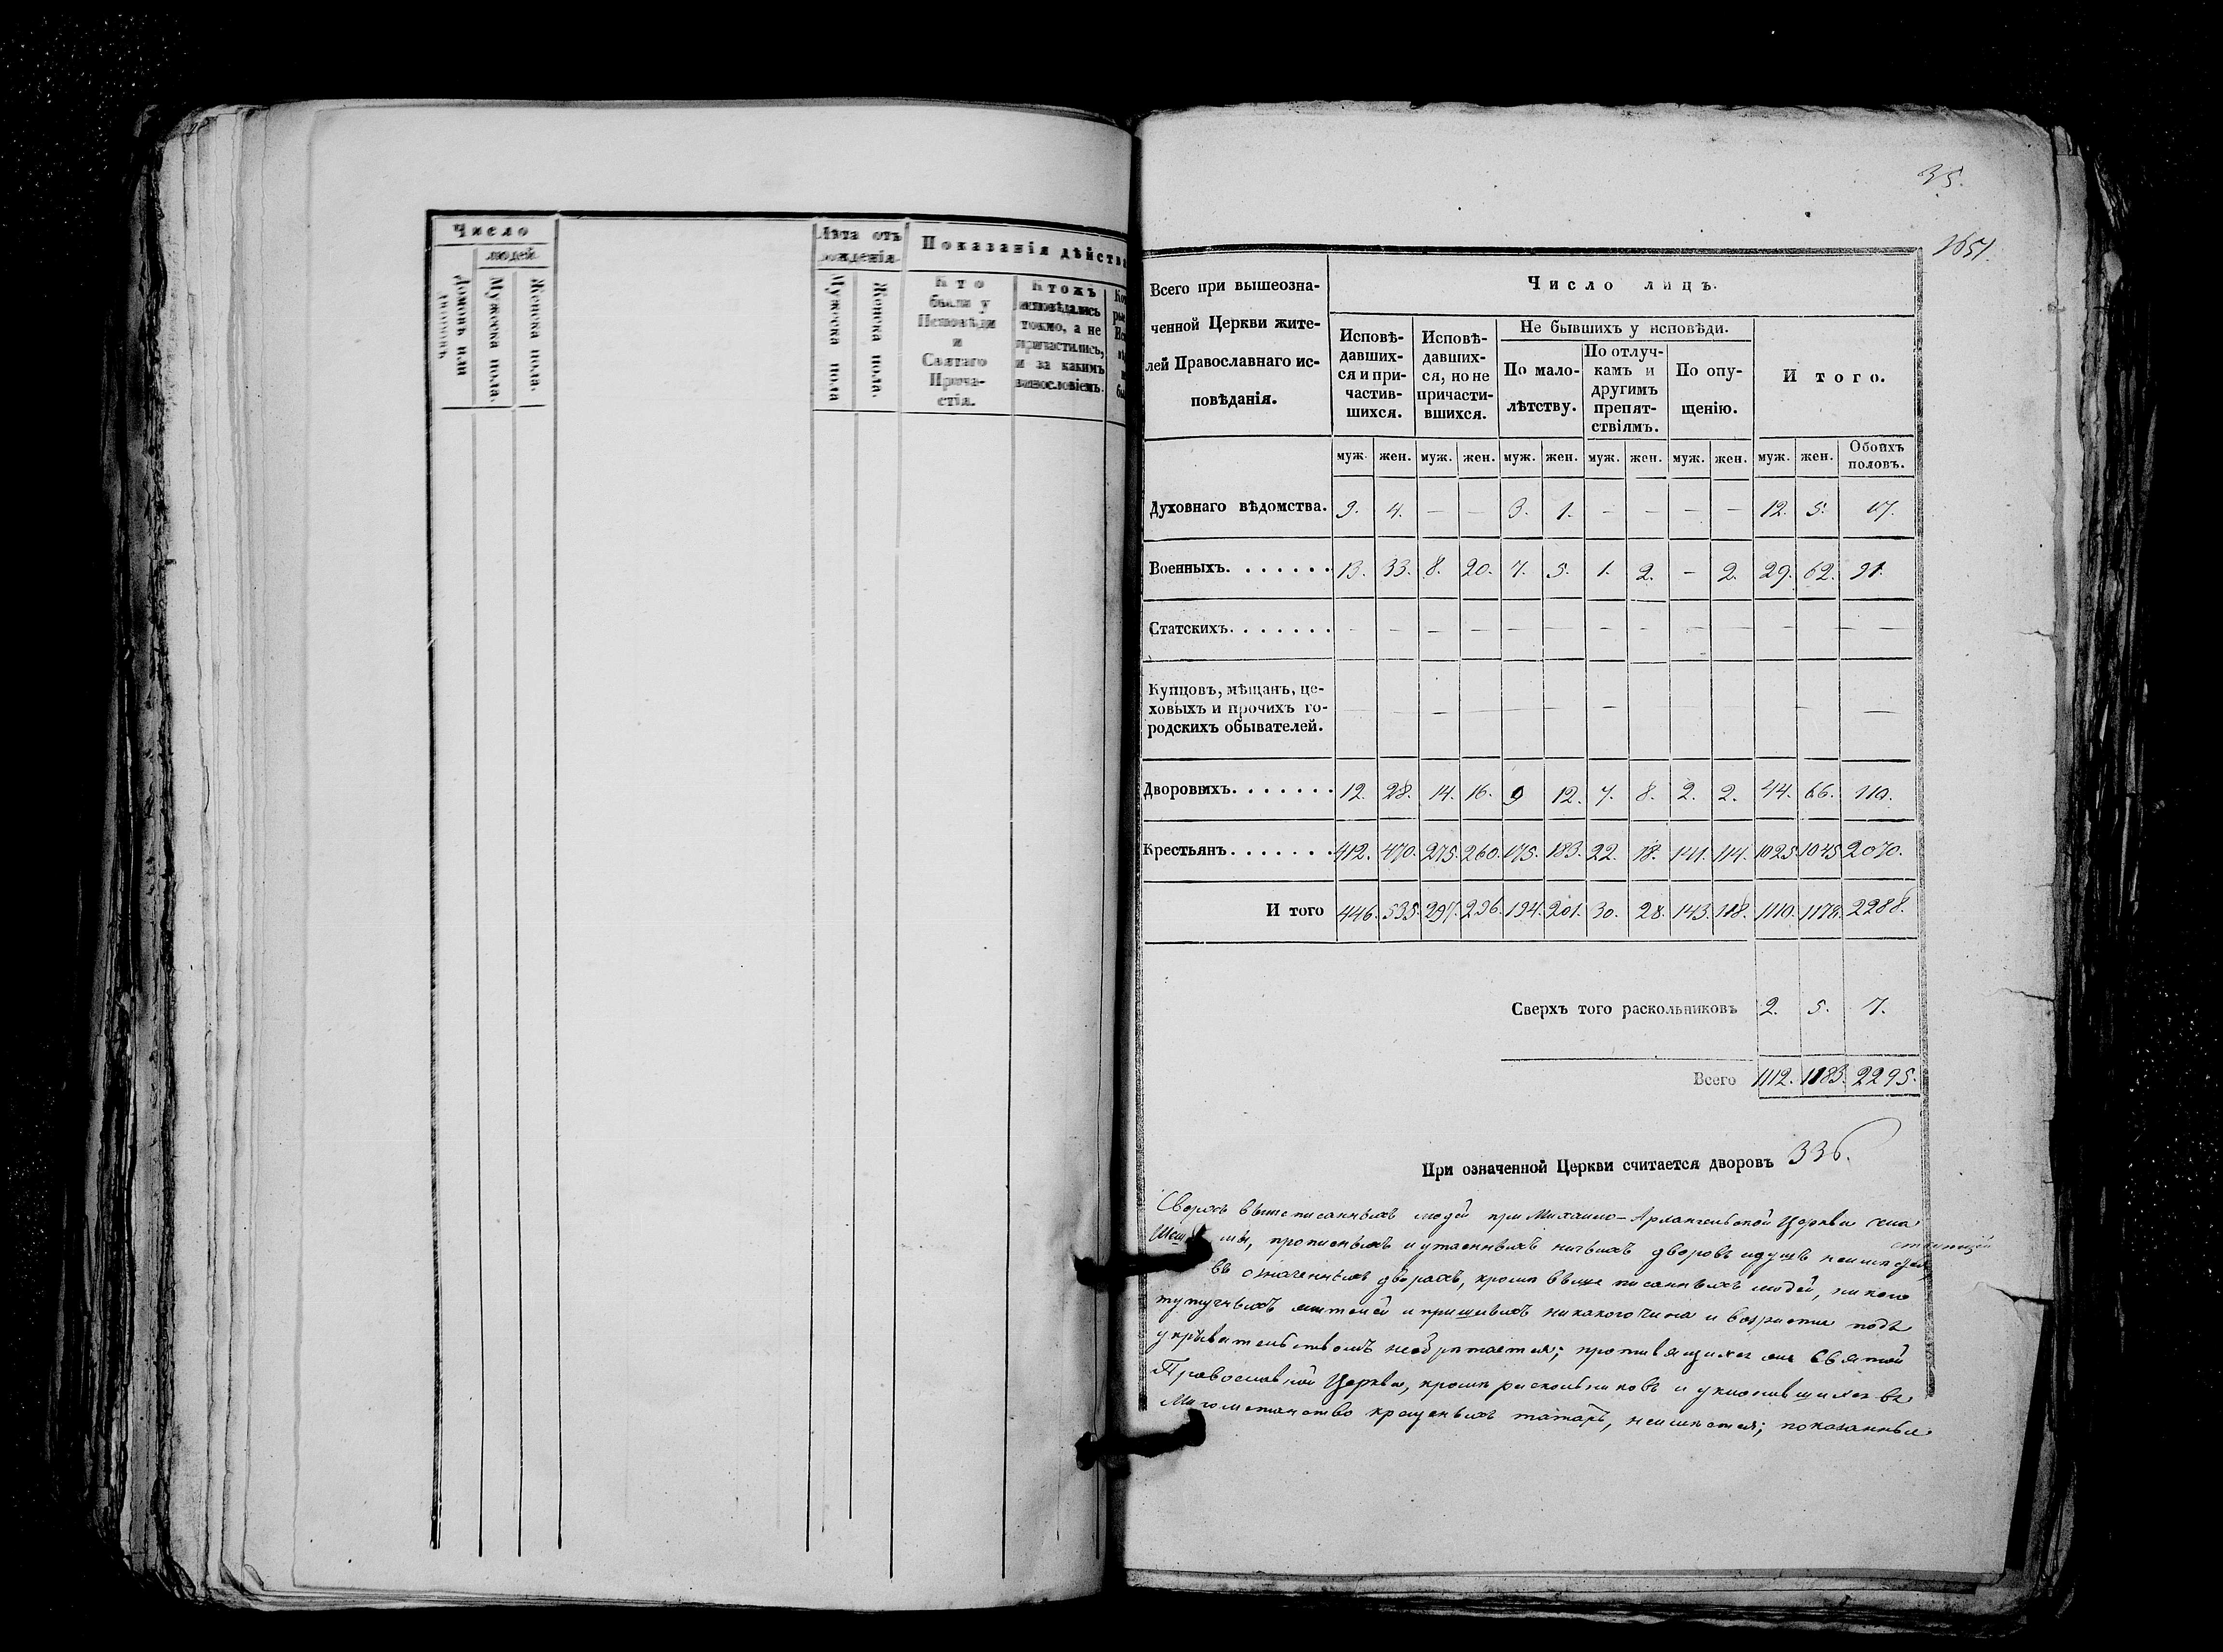 Число
людей
Домовъ или дворовъ
Мужеска пола.
Женска пола.
Лѣта отъ
рожденія
Мужеска пола
Женска пола.
Показанія дѣйства
Кто
были у
Исповѣди
и
Святаго
Прича-
стія.
Ктожъ
исповѣдались
токмо, а не
причастились,
и за какимъ
винословіемъ.
35.
Всего при вышеозна-
ченной Церкви жите-
лей Православнаго ис-
повѣданія.
Число лицъ.
Исповѣ-
давших-
ся и при-
частив-
шихся.
Исповѣ-
давших-
ся, но не
причасти-
вшихся.
Не бывшихъ у исповѣди.
По мало-
лѣтству.
По отлуч-
камъ и
другимъ
препят-
ствіямъ.
По опу-
щенію.
И того.
муж. жен. муж. жен. муж. жен. муж. жен. муж. жен. муж. жен. Обоихъ половъ.
Духовнаго вѣдомства. 9. 4. — — 3. 1. — — — — 12. 5. 17.
Военныхъ. . . . . . . 13. 33. 8. 20. 7. 5. 1. 2. — 2. 29. 62. 91.
Статскихъ. . . . . . . — — — — — — — — — — — — —
Купцовъ, мѣщанъ, це-
ховыхъ и прочихъ го-
родскихъ обывателей.
Дворовыхъ. . . . . . . 12. 28. 14. 16. 9 12. 7. 8. 2. 2. 44. 66. 110.
Крестьянъ. . . . . . . 412. 470. 275. 260. 175. 183. 22. 18. 141. 114. 1025. 1045 2070.
И того 446. 535. 297. 296. 194. 201. 30. 28. 143. 118. 1110. 1178. 2288.
Сверхъ того раскольниковъ 2. 5. 7.
Всего 1112. 1183. 2295.
При означенной Церкви считается дворовъ 336.
Сверхъ вышеписанныхъ людей при Михаило-Архангельской Церкви села
прописныхъ и утаенныхъ ничьихъ дворовъ
въ означенныхъ дворахъ, кромѣ выше писанныхъ людей, никого
жителей и пришлыхъ никакого чина и возраста подъ
укрывательствомъ необрѣтается; противящихся Святой
Православной Церкви, кромѣ раскольниковъ и уклонившихся въ
Магометанство крещеныхъ татаръ, неимѣется; показанныя